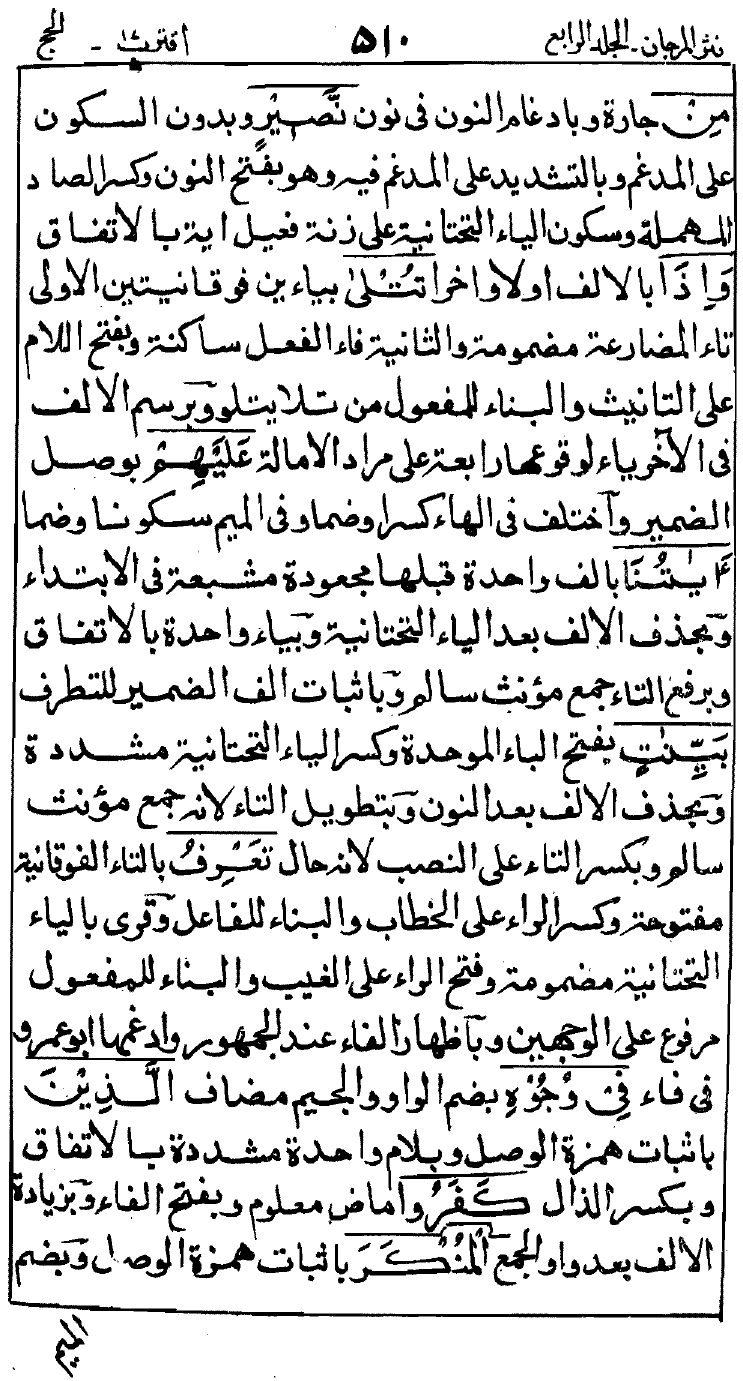 نثر المرجان ـ الجلد الرابع ٥١٠ اقترب ١٧ ـ الحج
مِنْ جارة وبادغام النون فى نون نَّصِيْرٍ وبدون السكون
على المدغم وبالتشديد على المدغم فيه وهو بفتح النون وكسر الصاد
المهملة وسكون الياء التحتانية على زنة فعيل اية بالاتفاق
وَاِذَا بالالف اولا واخرا تُتْلٰى بتاءين فوقانيتين الاولى
تاء المضارعة مضمومة والثانية فاء الفعل ساكنة وبفتح اللام
على التانيث والبناء للمفعول من تلا يتلو وبرسم الالف
فى الآخر ياء لوقوعها رابعة على مراد الامالة عَلَيْهِمْ بوصل
الضمير وآختلف فى الهاء كسرا وضما وفى الميم سكونا وضما
اٰيٰتُنَا بالف واحدة قبلها مجعودة مشبعة فى الابتداء
وبحذف الالف بعد الياء التحتانية وبياء واحدة بالاتفاق
وبرفع التاء جمع مؤنث سالم وباثبات الف الضمير للتطرف
بَيِّنٰتٍ بفتح الباء الموحدة وكسر الياء التحتانية مشددة
وبحذف الالف بعد النون وبتطويل التاء لانه جمع مؤنث
سالم وبكسر التاء على النصب لانه حال تَعْرِفُ بالتاء الفوقانية
مفتوحة وكسر الراء على الخطاب والبناء للفاعل وقرى بالياء
التحتانية مضمومة وفتح الراء على الغيب والبناء للمفعول
مرفوع على الوجهين وبآظهار الفاء عند الجمهور وادغمها ابو عمرو
فى فاء فِىْ وُجُوْهِ بضم الواو والجيم مضاف الَّذِيْنَ
باثبات همزة الوصل وبلام واحدة مشددة بالاتفاق
وبكسر الذال كَفَرُوا ماض معلوم وبفتح الفاء وبزيادة
الالف بعد واو الجمع الْمُنْكَرَ باثبات همزة الوصل وبضم
الميم